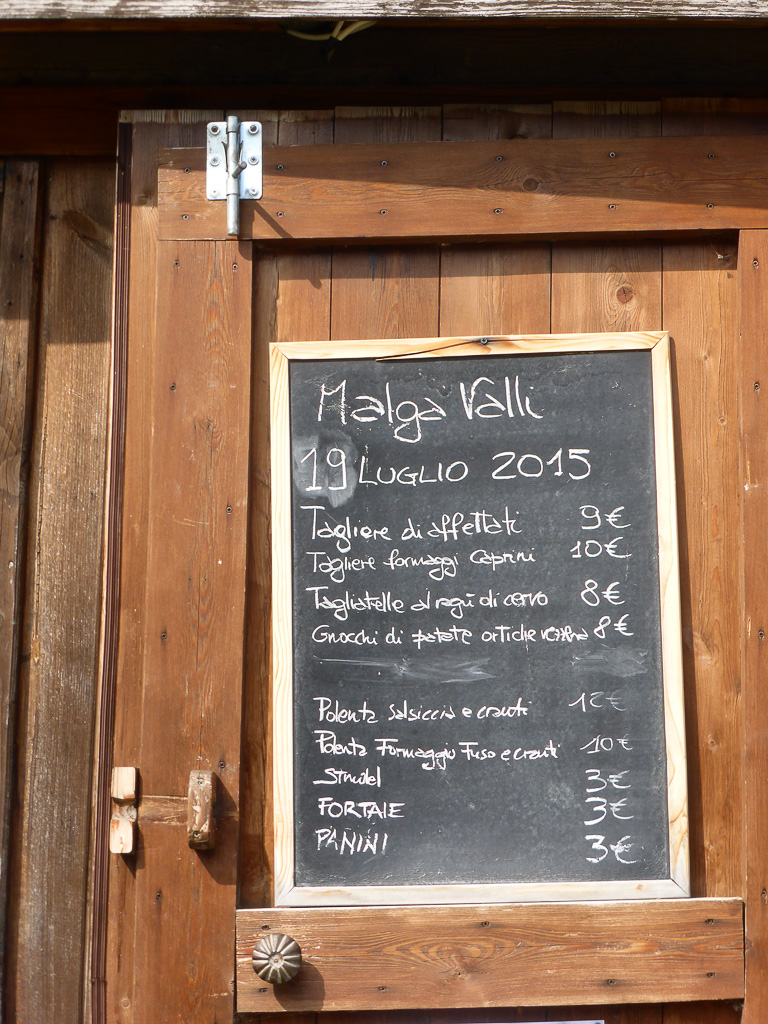 Malga Valli
19 LUGLIO 2015
Tagliere di affettati 9€
Tagliere formaggi Caprini 10€
Tagliatelle al ragù di cervo 8€
Gnocchi di patate ortiche 8€
Polenta Salsiccia e crauti 12€
Polenta Formaggio Fuso e crauti 10€
Strudel 3€
FORTAIE 3€
PANINI 3€